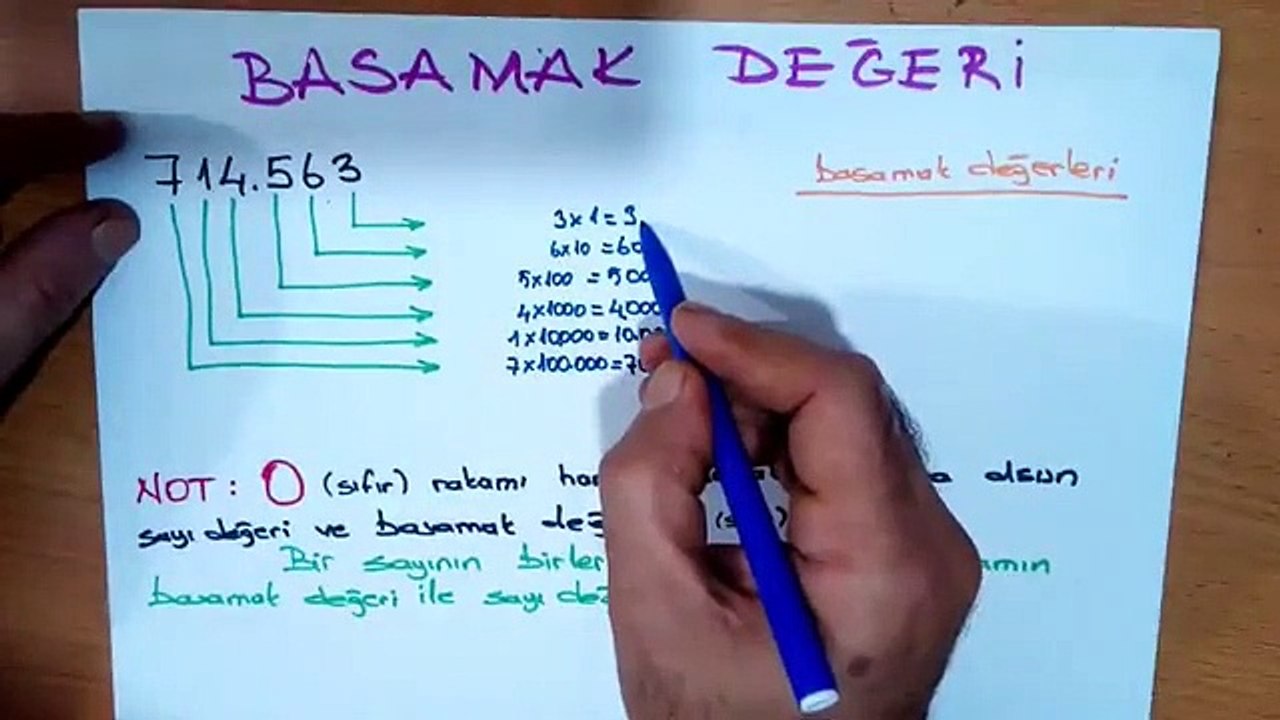 BASAMAK DEĞERİ
714.563
basamak değerleri
3x1=3
6x10=60
5x100=500
4x1000=4000
1x10.000=10.00
7x100.000=7
NOT: 0 (sıfır) rakamı olsun
sayı değeri ve basamak
Bir sayının
basamak değeri ile sayı